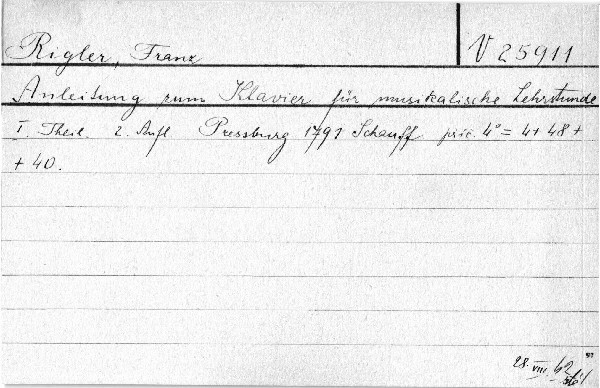 Rigler, Franz
V 25911
Anleitung zum Klavier für musikalische Lehrstunde
I. Theil. 2. Aufl. Pressburg 1791 Schauff 4° = 4 + 48 +
+ 40.
28. VIII. 62